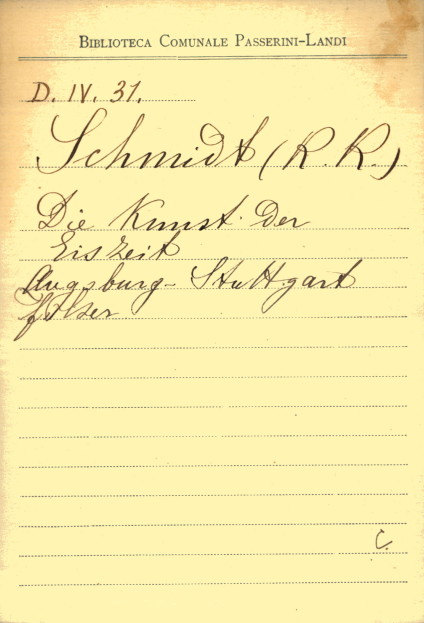 BIBLIOTECA COMUNALE PASSERINI-LANDI
D. IV. 31.
Schmidt (R. R.)
Die Kunst der
Eiszeit
Augsburg - Stuttgart
C.